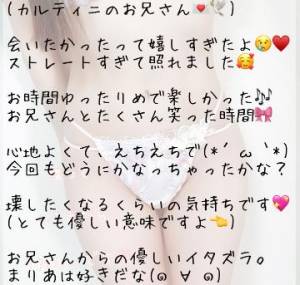 (カルティニのお兄さん💌🕊️)
会いたかったって嬉しすぎたよ😢❤️
ストレートすぎて照れました🥰
お時間ゆったりめで楽しかった🎶
お兄さんとたくさん笑った時間🎀
心地よくて、えちえちで(*´ω`*)
今回もどうにかなっちゃったかな？
壊したくなるくらいの気持ちです💖
(とても優しい意味ですよ👈)
お兄さんからの優しいイタズラ。
まりあは好きだな(๑ ∀ ๑)